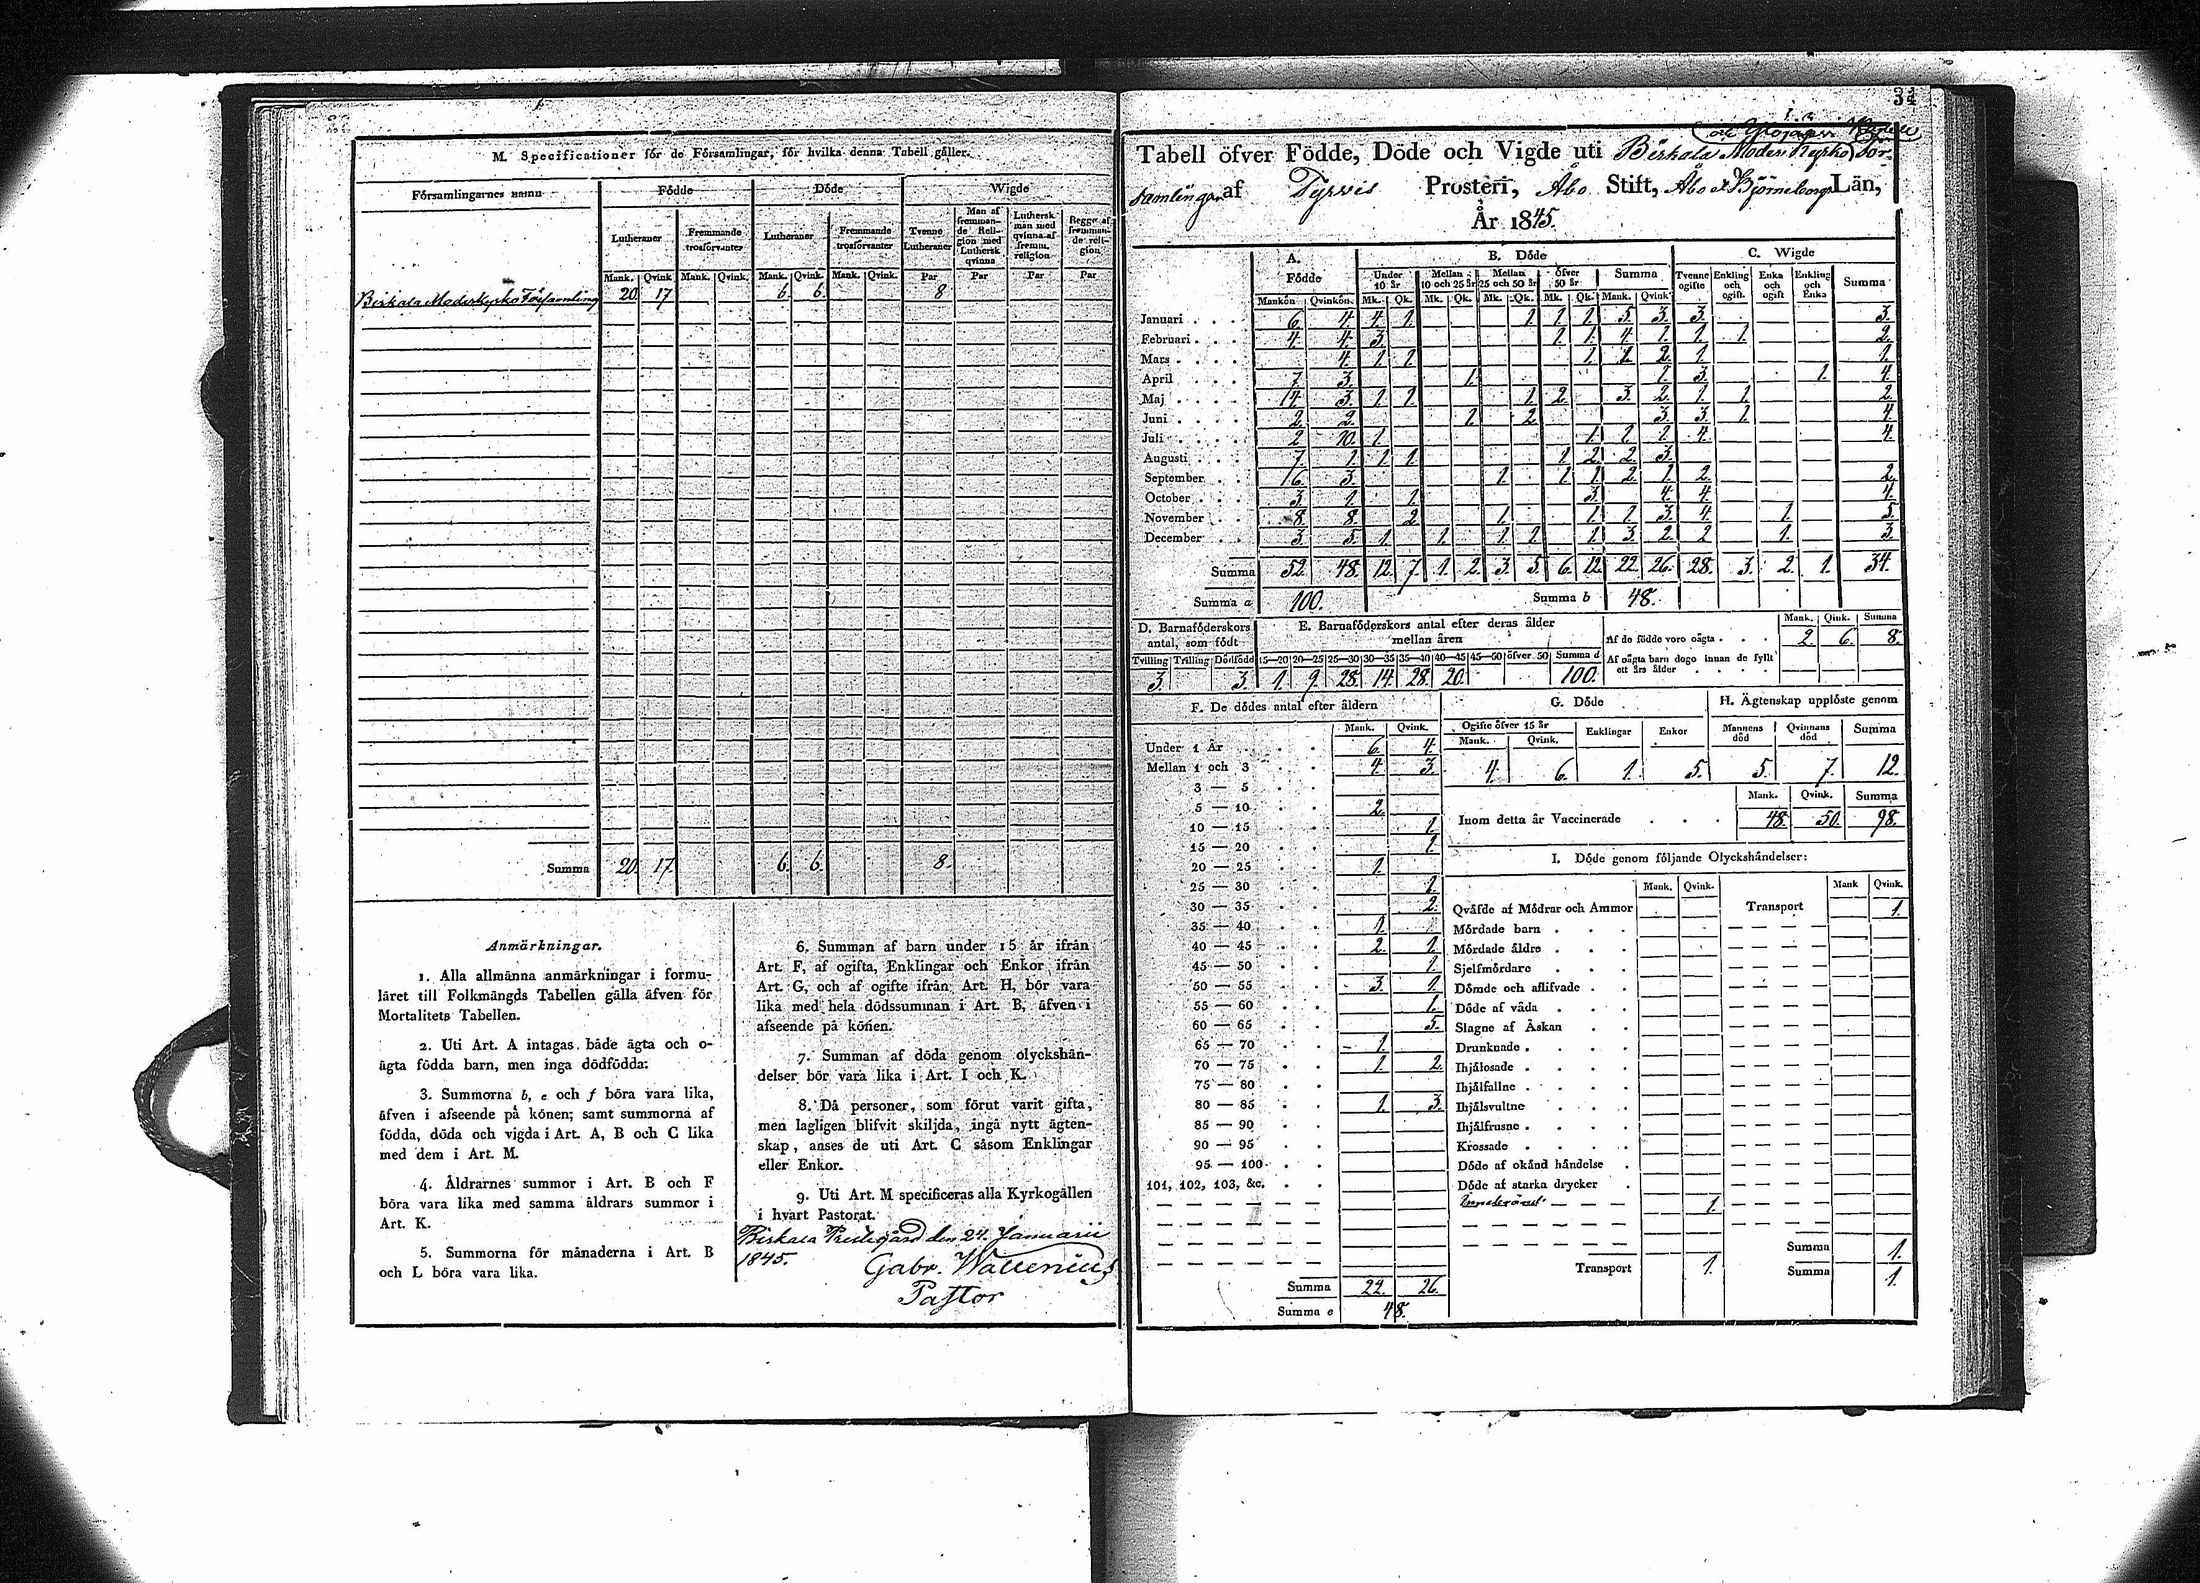 M. Specificationer för de Församlingar, för hvilka denna Tabell gäller.
Församlingarnes namn Födde Döde Wigde
Lutheraner Fremmande trosforvanter Lutheraner Fremmande trosforvanter Tvenne Lutheraner Man af fremmande Religion med Luthersk qvinna Luthersk man med qvinna af fremm. religion Begge af fremmande religion
Mank. Qvink Mank. Qvink. Mank. Qvink. Mank. Qvink. Par Par Par Par
Birkala Moderkyrko Församling 20. 17. 6. 6. 8
Summa 20. 17. 6. 6. 8.
Anmärkningar.
1. Alla allmänna anmärkningar i formu-
läret till Folkmängds Tabellen gälla äfven för
Mortalitets Tabellen.
2. Uti Art. A intagas både ägta och o-
ägta födda barn, men inga dödfödda.
3. Summorna b, e och f böra vara lika,
äfven i afseende på könen; samt summorna af
födda, döda och vigda i Art. A, B och C lika
med dem i Art. M.
4. Åldrarnes summor i Art. B och F
böra vara lika med samma åldrars summor i
Art. K.
5. Summorna för månaderna i Art. B
och L böra vara lika.
6. Summan af barn under 15 år ifrån
Art. F, af ogifta, Enklingar och Enkor ifrån
Art. G, och af ogifte ifrån Art. H, bör vara
lika med hela dödssumman i Art. B, äfven i
afseende på könen.
7. Summan af döda genom olyckshän-
delser bör vara lika i Art. I och K.
8. Då personer, som förut varit gifta,
men lagligen blifvit skiljda, ingå nytt ägten-
skap, anses de uti Art. C såsom Enklingar
eller Enkor.
9. Uti Art. M specificeras alla Kyrkogällen
i hvart Pastorat.
Birkala Prestegård den 24. Januarii
1845.
Gabr. Wallenius
Pastor
34
Tabell öfver Födde, Döde och Vigde uti Birkala Moder Kyrko För-
samlingar af Tyrvis Prosteri, Åbo Stift, Åbo & Björneborgs Län,
År 1845.
A. Födde B. Döde C. Wigde
Under 10 år Mellan 10 och 25 år Mellan 25 och 50 år öfver 50 år Summa Tvenne ogifte Enkling och ogift. Enka och ogift Enkling och Enka Summa
Mankön Qvinkön. Mk. Qk. Mk. Qk. Mk. Qk. Mk. Qk. Mank. Qvink
Januari 6. 4. 4. 1. 1. 1. 1. 5. 3. 3. 3.
Februari 4. 4. 3. 1. 1. 4. 1. 1. 1. 2.
Mars 4. 1. 1. 1. 1. 2. 1. 1.
April 7. 3. 1. 1. 3. 1. 4.
Maj 14. 3. 1. 1. 1. 2. 3. 2. 1. 1. 2.
Juni 2. 2. 1. 2. 3. 3. 1. 4.
Juli 2 10. 1. 1. 1. 1. 4. 4.
Augusti 7. 1. 1. 1. 1. 2. 2. 3.
September 16. 3. 1. 1. 1. 2. 1. 2. 2.
October 3. 1. 1. 3. 4. 4. 4.
November 8. 8. 2. 1. 1. 1. 3. 4. 1. 5.
December 3. 5. 1. 1. 1. 1. 1. 3. 2. 2. 1. 3.
Summa 52. 48. 12. 7. 1. 2. 3. 5. 6. 12. 22. 26. 28. 3. 2. 1. 34.
Summa a 100. Summa b 48.
D. Barnaföderskors antal, som födt
Tvilling Trilling Dödfödd
3. 3.
E. Barnaföderskors antal efter deras ålder mellan åren
15—20 20—25 25—30 30—35 35—40 40—45 45—50 öfver 50 Summa d
1. 9. 28. 14. 28. 20. 100.
Mank. Qink. Summa
Af de födde voro oägta 2. 6. 8.
Af oägta barn dogo innan de fyllt ett års ålder
F. De dödes antal efter åldern
Mank. Qvink.
Under 1 År 6. 4.
Mellan 1 och 3 4. 3.
3 — 5
5 — 10 2.
10 — 15 1.
15 — 20 1.
20 — 25 1.
25 — 30 1.
30 — 35 2.
35 — 40 1.
40 — 45 2. 1.
45 — 50 1.
50 — 55 3. 1.
55 — 60 1.
60 — 65 5.
65 — 70 1.
70 — 75 1. 2.
75 — 80
80 — 85 1. 3.
85 — 90
90 — 95
95 — 100
101, 102, 103, &c.
Summa 22. 26.
Summa e 48.
G. Döde
Ogifte öfver 15 år Enklingar Enkor
Mank. Qvink.
4. 6. 1. 5.
H. Ägtenskap upplöste genom
Mannens död Qvinnans död Summa
5. 7. 12.
Mank. Qvink. Summa
Inom detta år Vaccinerade 48. 50. 98.
I. Döde genom följande Olyckshändelser:
Mank. Qvink. Mank Qvink.
Qväfde af Mödrar och Ammor Transport 1.
Mördade barn
Mördade äldre
Sjelfmördare
Dömde och aflifvade
Döde af våda
Slagne af Åskan
Drunknade
Ihjälosade
Ihjälfallne
Ihjälsvultne
Ihjälfrusne
Krossade
Döde af okänd händelse
Döde af starka drycker
1.
Summa 1.
Transport 1. Summa 1.